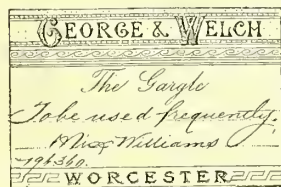 GEORGE & WELCH
The Gargle
To be used frequently.
Miss Williams
196360.
WORCESTER